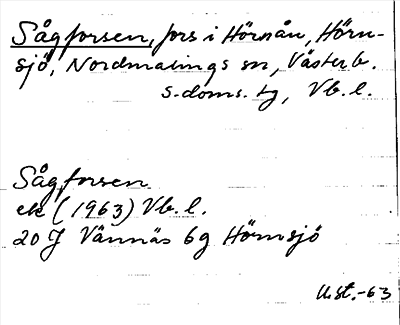 Sågforsen, fors i Hörnån, Hörn-
sjö, Nordmalings sn, Västerb.
s.doms. tg, Vb. l.
Sågforsen
ek (1963) Vb. l.
20 J Vännäs 6g Hörnsjö
U.st.-63